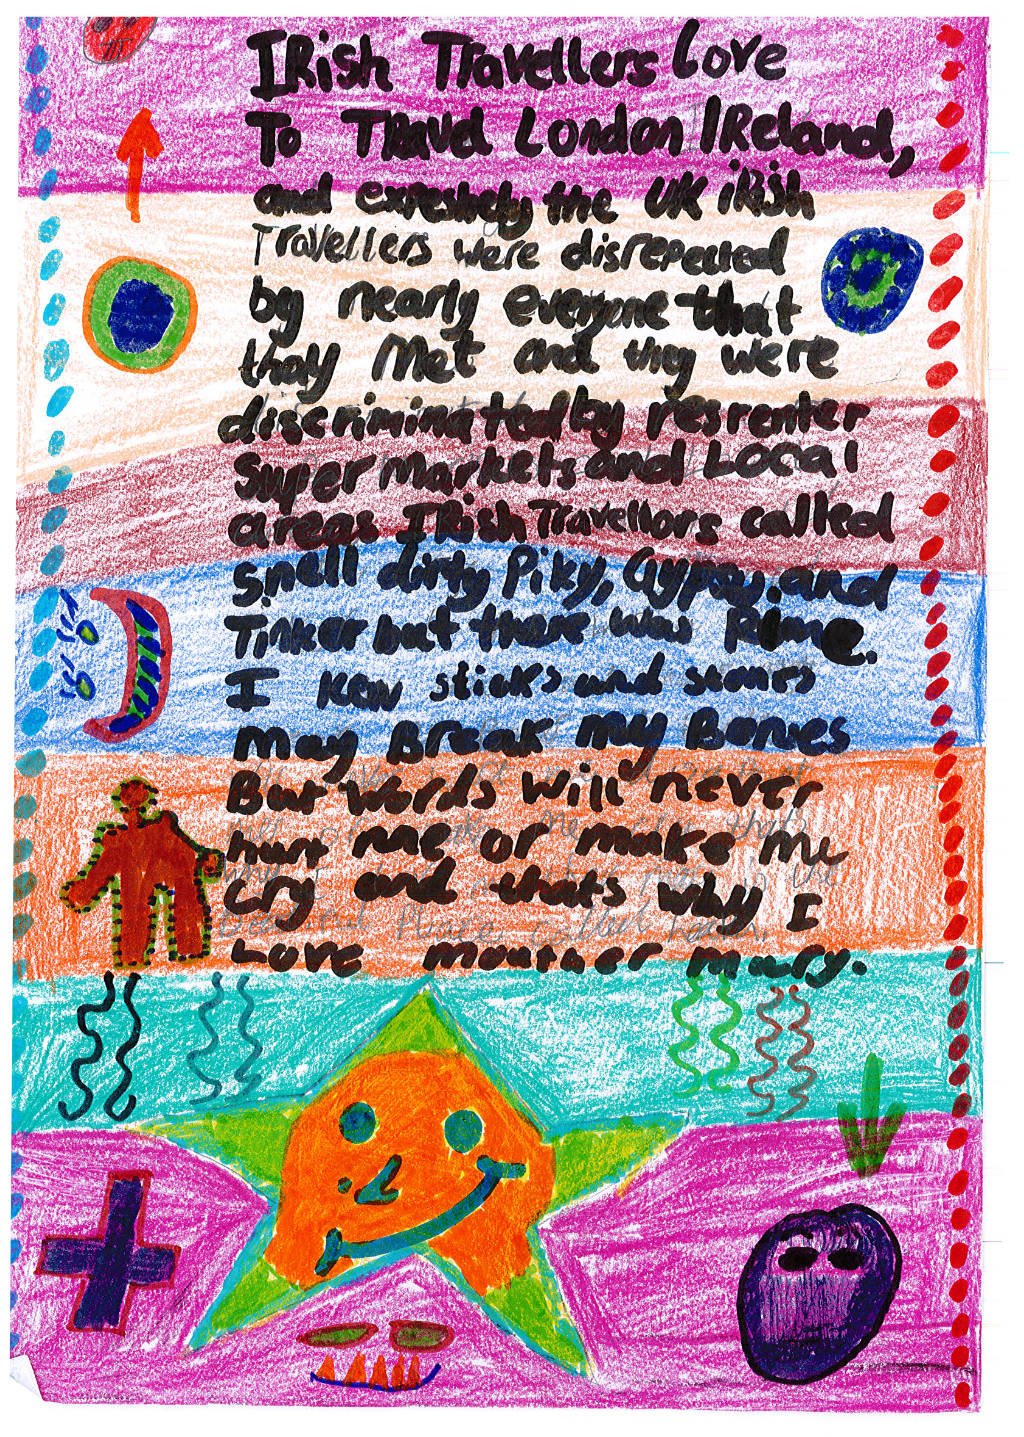 IRish Travellers Love
To Travel London IReland,
and expeshely the UK iRish
Travellers were disrepected
by nearly everyone that
thay Met and thy were
discriminated by resrenter
super Markets and Local
areas IRish Travellors called
smell dirty Piky, Gypsy, and
Tinker but there was
I knw sticks and stones
may Break my Bones
But Words will never
hurt me or make me
cry and thats why I
Love mouther mary.